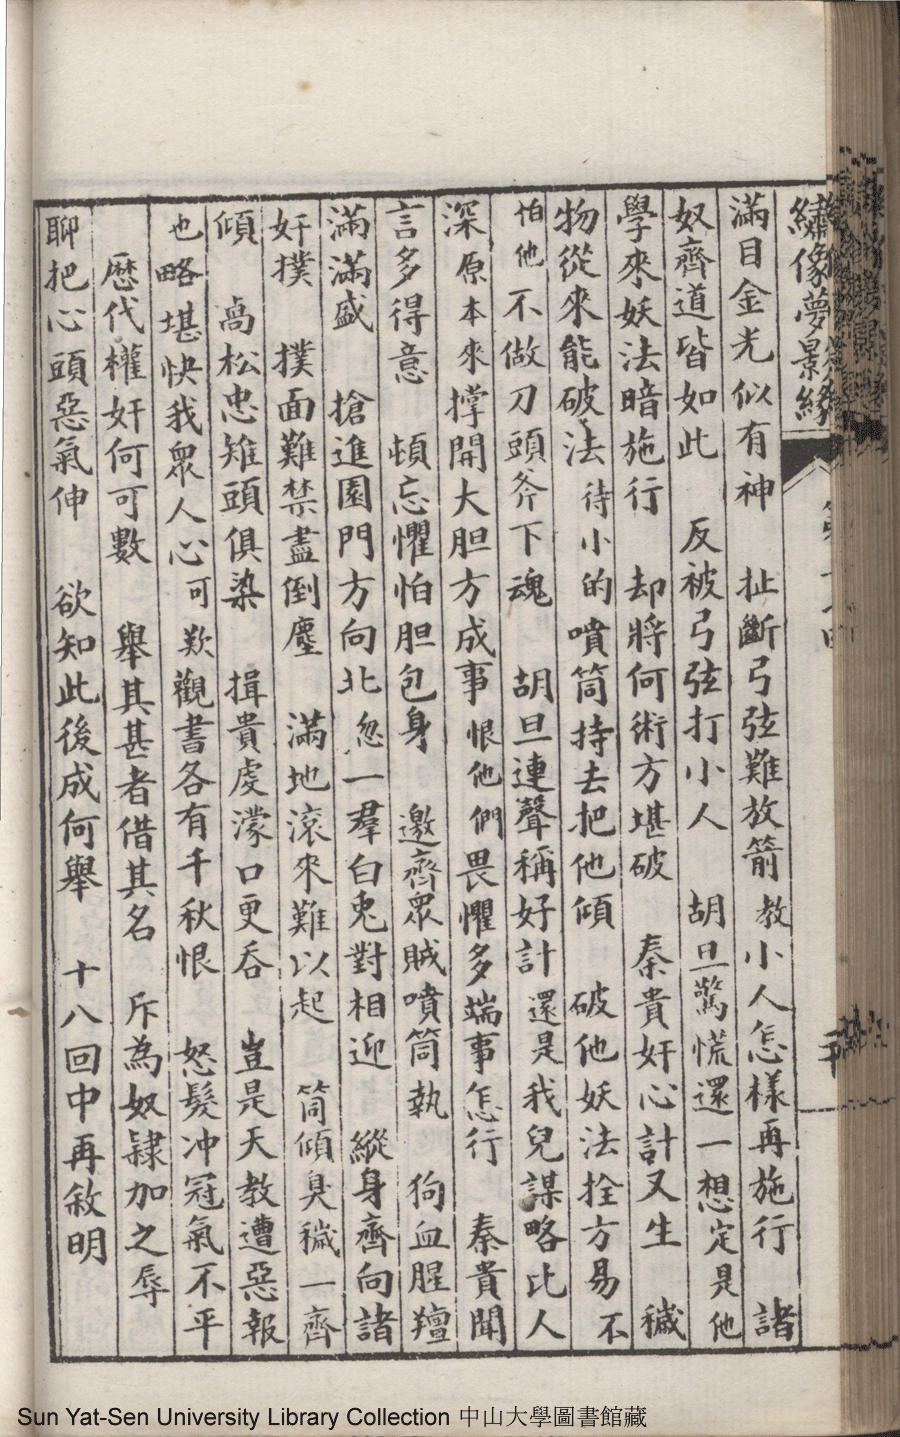 繡像夢景緣
滿目金光似有神　扯斷弓弦難放箭　教小人怎樣再施行　諸
奴齊道皆如此　反被弓弦打小人　胡旦驚慌還一想定是他
學來妖法暗施行　却將何術方堪破　秦貴奸心計又生　穢
物從來能破法　待小的噴筒持去把他傾　破他妖法拴方易　不
怕他不做刀頭斧下魂　胡旦連聲稱好計　還是我兒謀略比人
深　原本來撑開大胆方成事　恨他們畏懼多端事怎行　秦貴聞
言多得意　頓忘懼怕胆包身　邀齊眾賊噴筒執　狗血腥羶
滿滿盛　搶進園門方向北　忽一羣白兎對相迎　縱身齊向諸
奸撲　撲面難禁盡倒塵　滿地滚來難以起　筒傾臭穢一齊
傾　卨松忠雉頭俱染　揖貴虔濛口更吞　豈是天教遭惡報
也略堪快我眾人心　可歎觀書各有千秋恨　怒髮冲冠氣不平
歷代權奸何可數　舉其甚者借其名　斥為奴隸加之辱
聊把心頭惡氣伸　欲知此後成何舉　十八回中再敘明
Sun Yat-Sen University Library Collection 中山大學圖書館藏